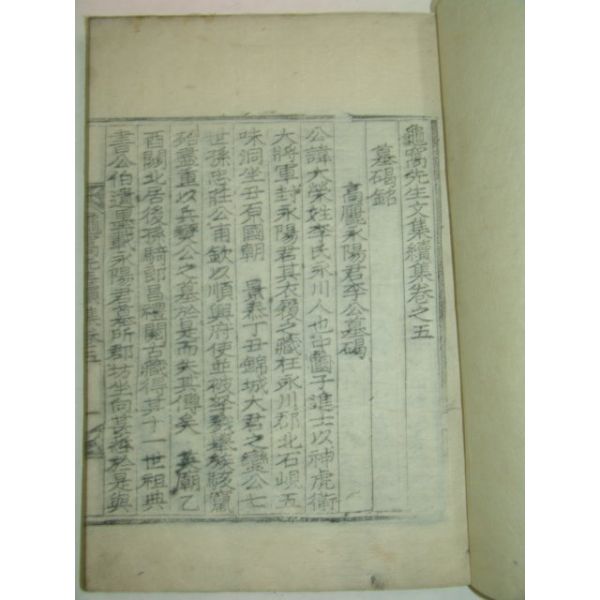 龜窩先生文集續集卷之五
墓碣銘
高麗永陽君李公墓碣
公諱大榮姓李氏永川人也中國子進士以神虎衛
大將軍封永陽君其衣履之藏在永川郡北石峴五
味洞坐丑有國朝 景泰丁丑錦城大君之變公七
世孫忠莊公甫欽以順興府使並被
殆盡重以兵燹公之墓於是而失其傳矣 英廟乙
酉關北居後孫騎郎昌 閱古藏得其十一世祖典
書公伯 里 載永陽君墓所郡坊坐向甚 於是與